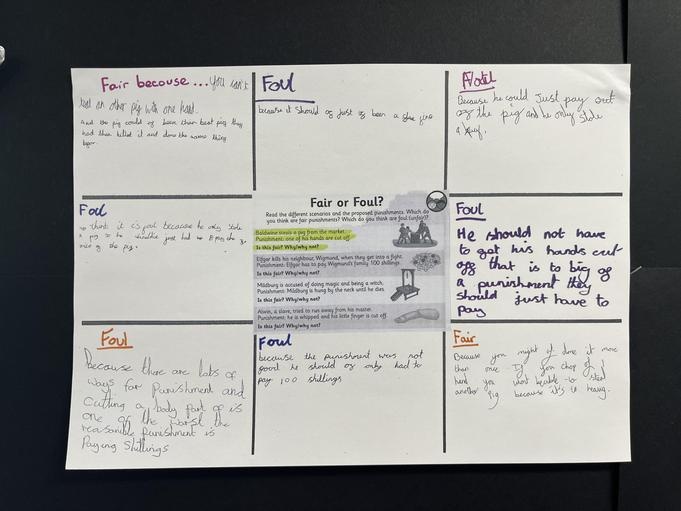 Fair becouse... You can't
teal an other pig with one hand.
and the pig could of been ther best pig they
had then killed it and done the worse thing
Foul
because it should of just of been a fine
Foul
Because he could Just pay out
of the pig and he only stole
a
Foul
think it is foul because he only stole
a pig so he just had to
of the pig.
Fair or Foul?
Read the different scenarios and the proposed punishments. Which do
you think are fair punishments? Which do you think are foul (unfair)?
Baldwine steals a pig from the market.
Punishment: one of his hands are cut off.
Is this fair? Why/why not?
Elfgar kills his neighbour, Wigmund, when they get into a fight.
Punishment: Elfgar has to pay Wigmund's family 100 shillings.
Is this fair? Why/why not?
Mildburg is accused of doing magic and being a witch.
Punishment: Mildburg is hung by the neck until he dies.
Is this fair? Why/why not?
Alwin, a slave, tried to run away from his master.
Punishment: he is whipped and his little finger is cut off.
Is this fair? Why/why not?
Foul
He should not have
to got his hands cut
off that is to big of
a punishment they
should just have to
pay
Foul
Because there are lots of
ways for Punishment and
Cutting a body part of is
one of the worst the
reasonable Punishment is
Paying Shillings
Foul
because the punishment was not
good he should of only had to
pay 100 shillings
Fair
Because you might of done it more
than once. If you chop of 1
hand you wont beable to steal
another pig because it's to heavy.